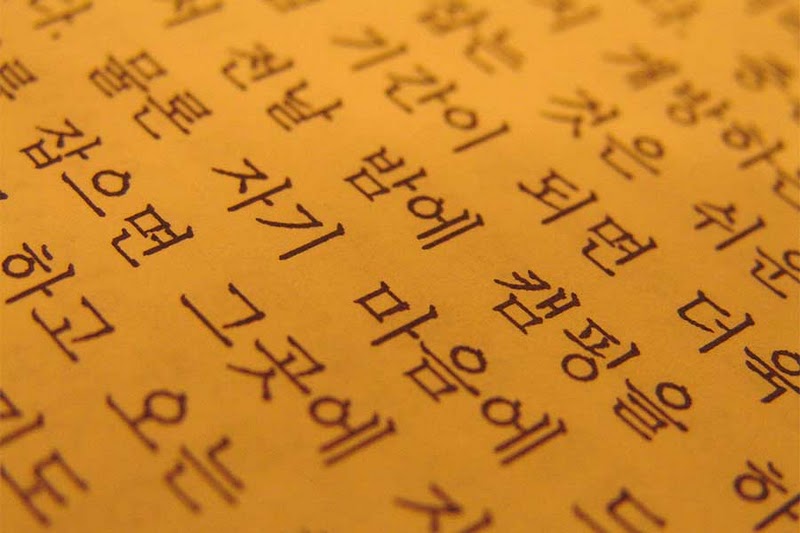 개방하는
잡는 것은 쉬운
기간이 되면 더욱
전날 밤에 캠핑을 하
다. 물론 자기 마음에
잡으면 그곳에
하고 오는
도